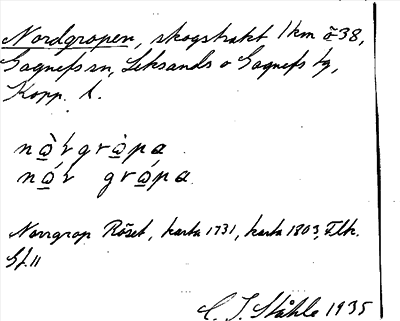 Nordgropen, skogstrakt 1 km ö 38,
Gagnefs sn, Leksands o Gagnefs tg,
Kopp. l.
nò̱rgrò̱pa
nó̱r gró̱pa
Norrgrop Röset, karta 1731, karta 1803,
St. 11
C. I. Ståhle 1935